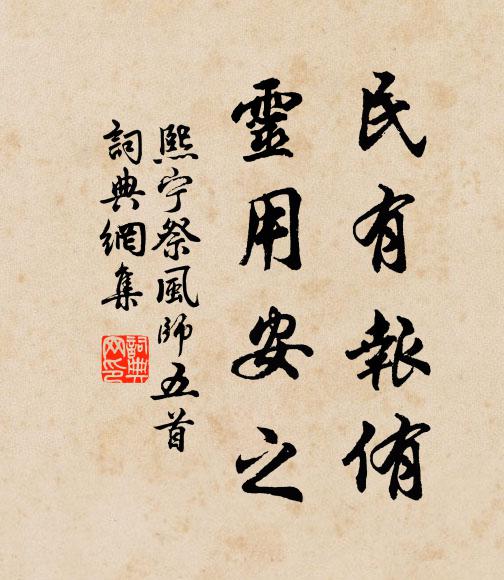 民有報侑
靈用安之
熙宁祭風師五首
詞典網集
詞典
网印